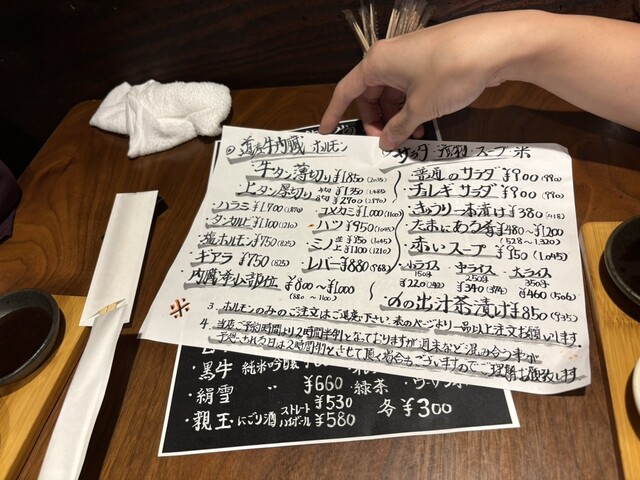 牛内臓 ホルモン
牛タン薄切り ¥1850
上タン厚切り ¥1,350
¥2,700
ハラミ ¥1,700 (1,870)
コメカミ ¥1,000 (1,100)
タンカルビ ¥1,100 (1,210)
ハツ ¥950 (1,045)
塩ホルモン ¥750 (825)
ミノ 並 ¥950 (1,045)
上 ¥1100 (1,210)
ギアラ ¥750 (825)
レバー ¥880 (968)
内臓希少部位 ¥800〜¥1,000
(880〜1100)
サラダ・スープ・米
普通のサラダ ¥900 (990)
チョレギサラダ ¥900 (990)
きゅうり一本漬け ¥380 (418)
たまにある希 ¥480〜¥1,200
(528〜1,320)
赤いスープ ¥950 (1,045)
小ライス 中ライス 大ライス
150g 250g 350g
¥220 (242) ¥340 (374) ¥460 (506)
〆の出汁茶漬け ¥850 (935)
※
3. ホルモンのみのご注文はご遠慮下さい 表のページより一品以上注文お願いします
4. 当店、ご予約時間より2時間半制となっておりますが週末など混み合う事が
予想される日は2時間制とさせて頂く場合もございますのでご理解お願い致します
・黒牛 純米吟醸
・絹雪 〃 ¥660
・緑茶
各¥300
・親玉 にごり酒 ストレート ¥530
ハイボール ¥580